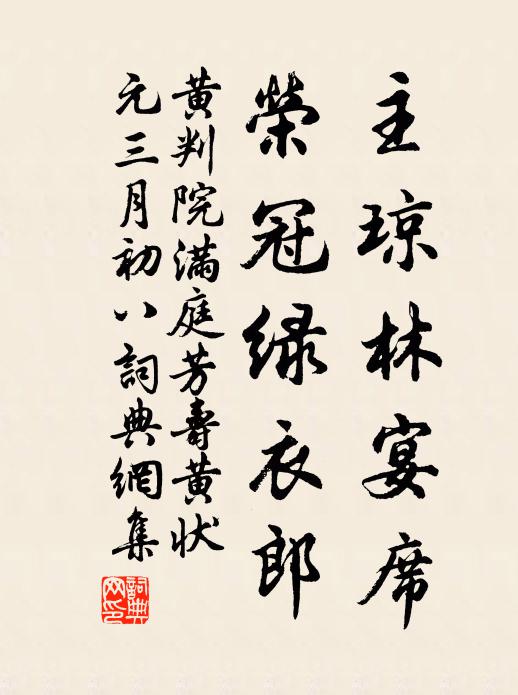 主琼林宴席
荣冠绿衣郎
黄判院满庭芳寿黄状
元三月初八詞典網集
詞典網印